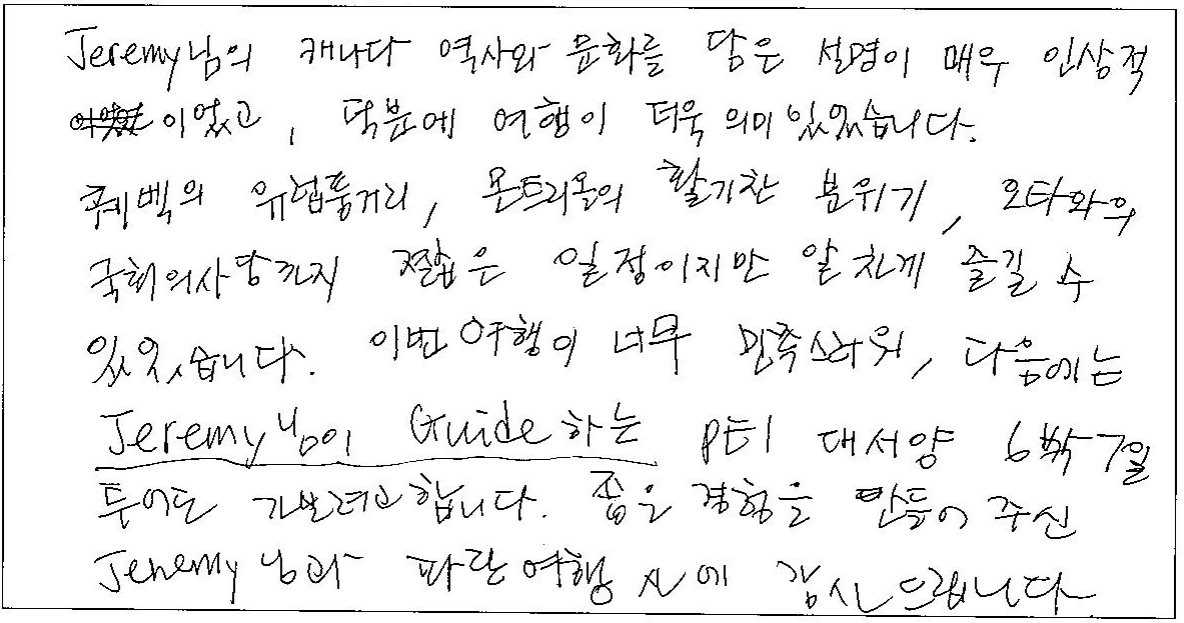 Jeremy님의 캐나다 역사와 문화를 담은 설명이 매우 인상적
이었고, 덕분에 여행이 더욱 의미있었습니다.
퀘벡의 유럽풍거리, 몬트리올의 활기찬 분위기, 오타와의
국회의사당까지 짧은 일정이지만 알차게 즐길 수
있었습니다. 이번 여행이 너무 만족스러워, 다음에는
Jeremy님이 Guide하는 PEI 대서양 6박7일
투어도 가보려고합니다. 좋은 경험을 만들어 주신
Jeremy님과 파란여행사에 감사드립니다.